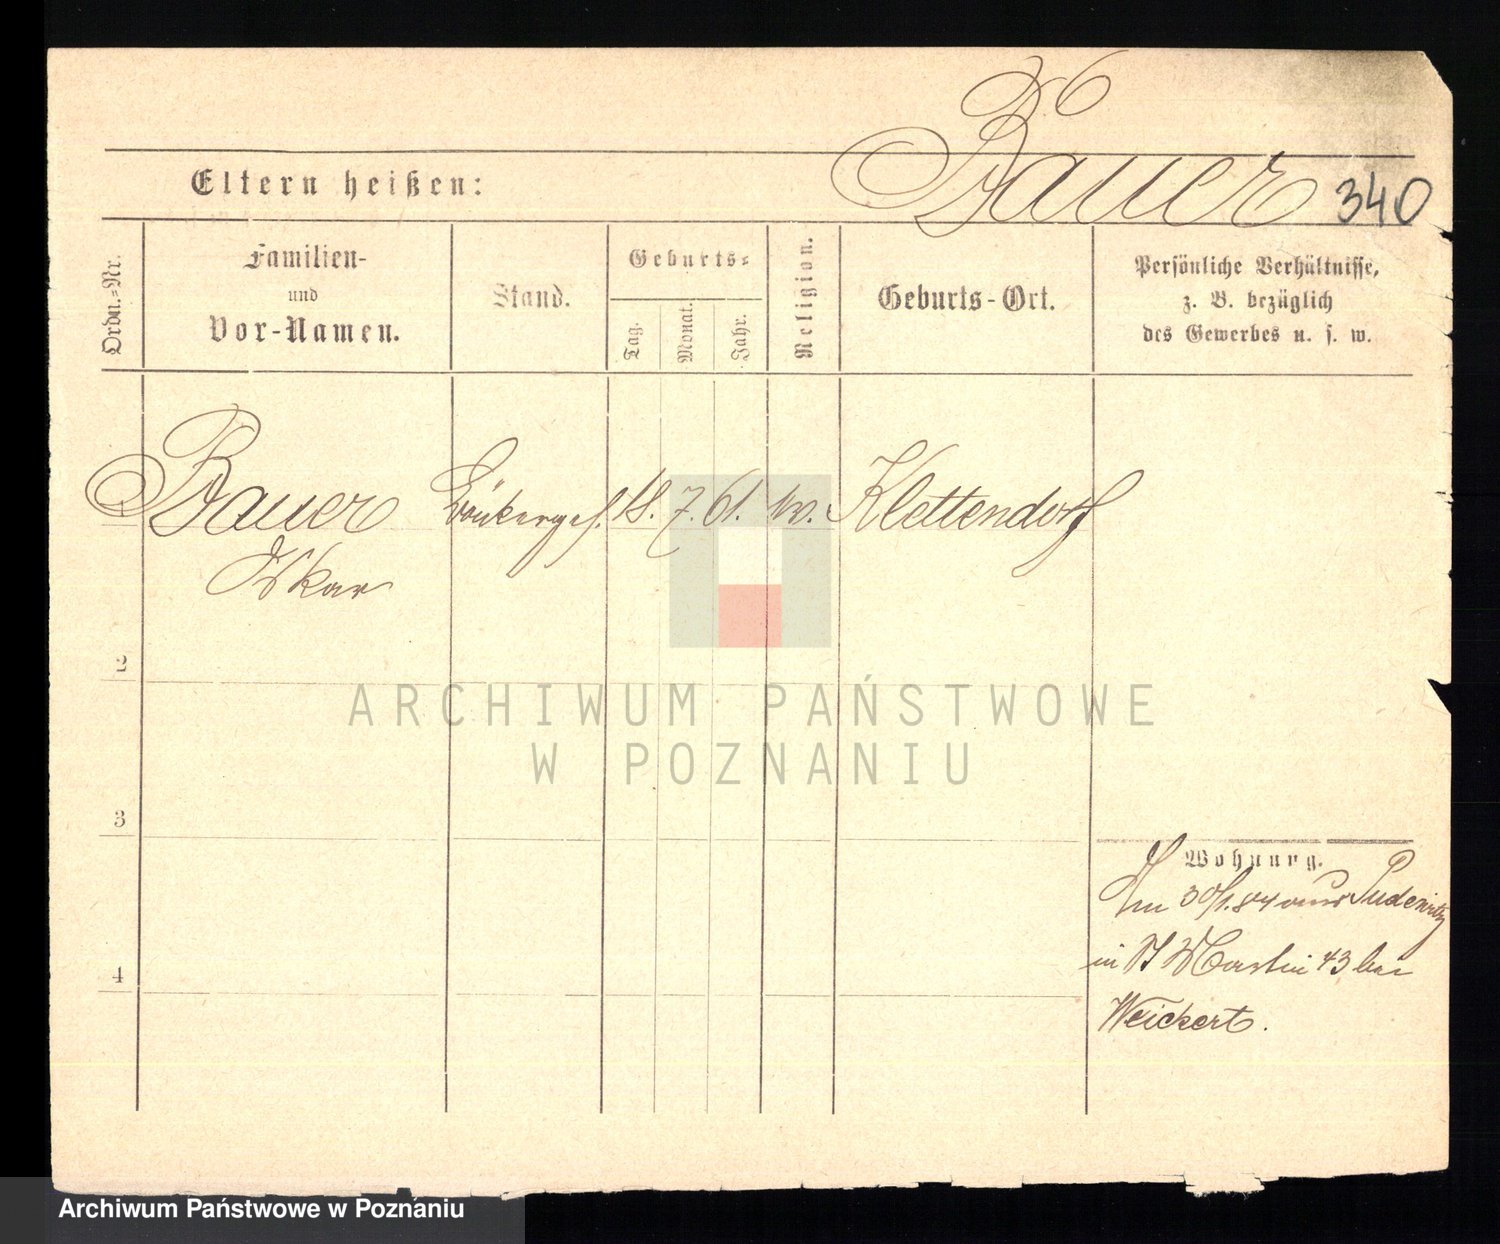 6
Bauer
340
Eltern heißen:
Ordn.-Nr.
Familien-
und
Vor-Namen.
Stand.
Geburts-
Tag.
Monat.
Jahr.
Religion.
Geburts-Ort.
Persönliche Verhältnisse,
z. B. bezüglich
des Gewerbes u. s. w.
1 Bauer 18. 7. 61. Klettendorf
Oskar
2
ARCHIWUM PAŃSTWOWE
W POZNANIU
3
Wohnung.
Am 30/1.84 aus Pudewitz
4
in St Martin 43 bei
Weickert.
Archiwum Państwowe w Poznaniu